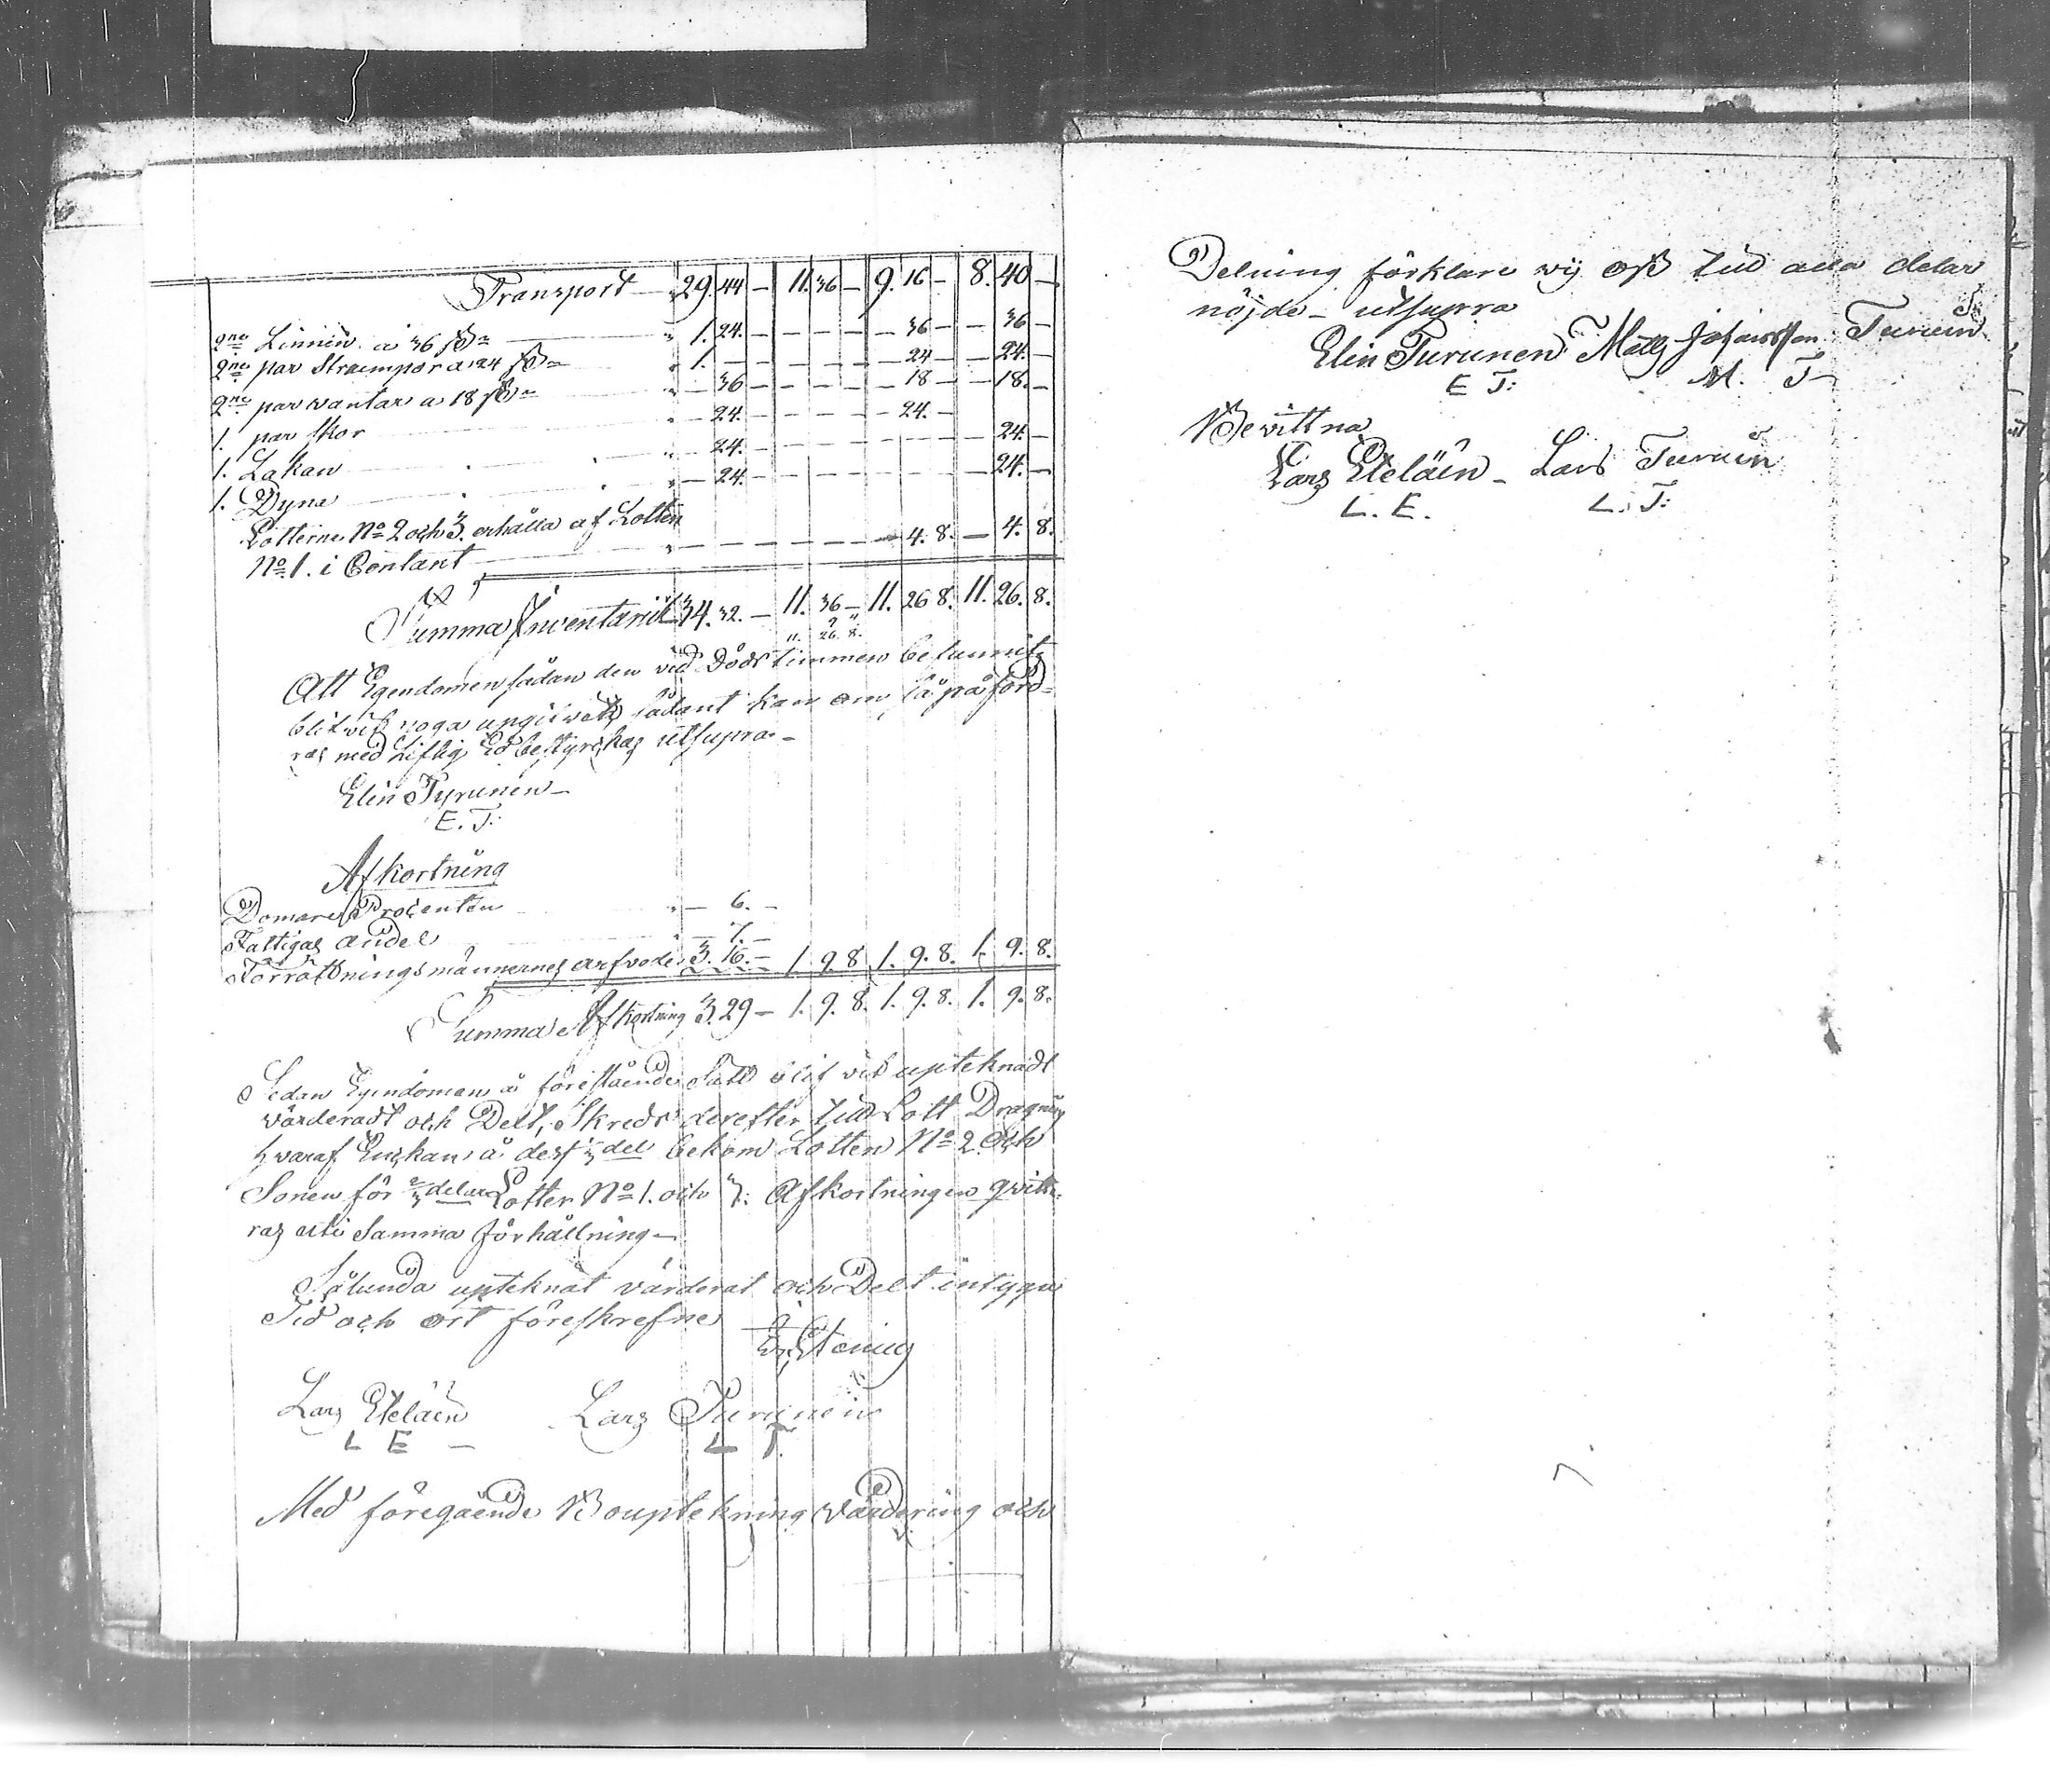 Transport 29. 44 — 11. 36 — 9. 16 — 8. 40 —
2ne Linnen à 36 sk 1. 24. — — — — — 36 — — 36 —
2ne par Strumpor a 24 sk 1. — — — — — 24 — — 24. —
2ne par vantar a 18 sk — 36 — — — — — 18 — — 18. —
1. par skor — 24. — — — — — 24. —
1. Lakan — 24. — — — — — — — — 24. —
1. Dyna — 24. — — — — — — — — 24. —
Lotterne No 2 och 3. erhålla af Lotten
No 1. i Contant — — — — — — — 4. 8. — 4. 8.
Summa Inventarii 34. 32. — 11. 36 — 11. 26 8. 11. 26. 8.
11. 26. 8.
Att Egendomen sådan den vid Dödstimmen befunnitz
blifvit noga upgifwen, sådant kan om så påford=
ras med Liflig Ed bestyrckas utsupra —
Elin Tyrunen —
E. T:
Afkortning
Domare Procenten — 6. —
Fattigas andel — 7. —
Förrättningsmännernes arfvode 3. 16. — 1. 9. 8 1. 9. 8. 1. 9. 8.
Summa Afkortning 3. 29 — 1. 9. 8. 1. 9. 8. 1. 9. 8.
Sedan Egendomen å förestående Sätt blifvit upteknadt
värderadt och Delt, Skreds derefter till Lott Dragning
hvaraf Enkan å dess 1/3 del bekom Lotten No 2. Och
Sonen för 2/3 delar Lotter No 1. och 3. Afkortningen qvitte=
ras uti Samma förhållning —
Sålunda upteknat värderat och Delt intygar
Tid och ort föreskrefne
Lars Eteläin Lars Turunein
L E — L T.
Med föregående Bouptekning värdering och
Delning förklare wij oss till alla delar
nöjde — utsupra
Elin Turunen Matts Johansson Turuin
E T: M. T
Bevittna
Lars Eteläin — Lars Turuin
L. E. L. T: